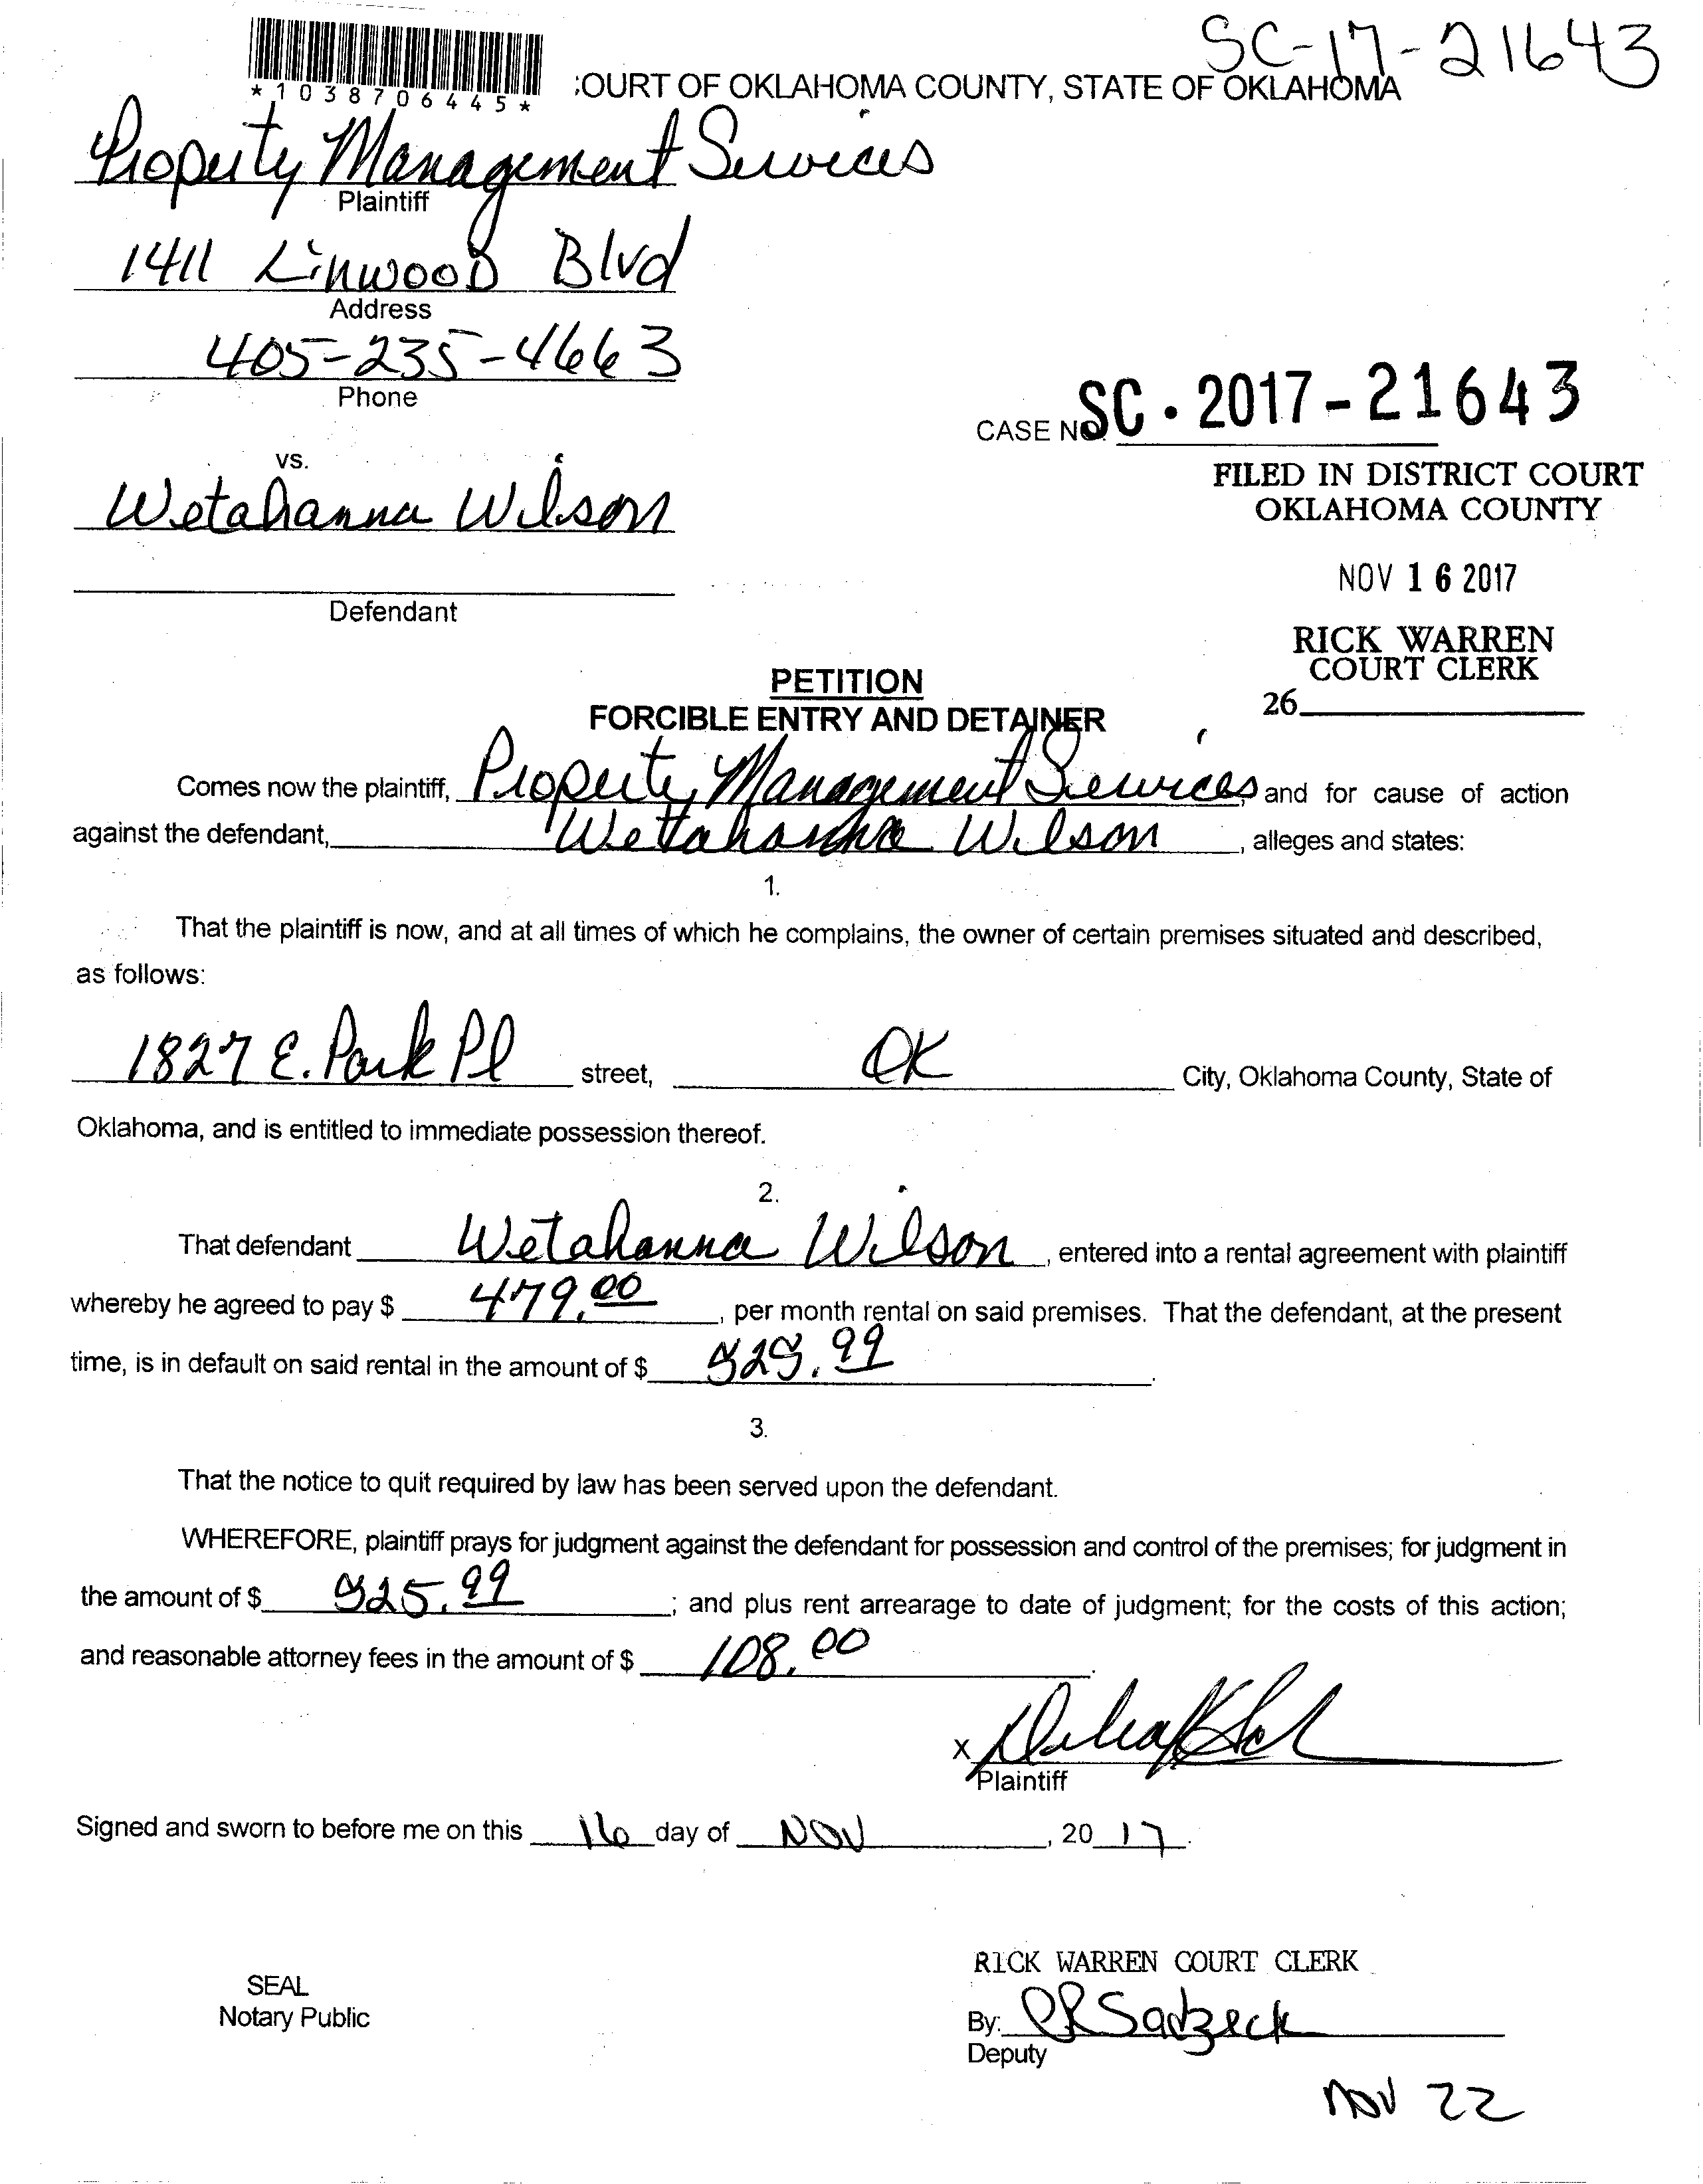 SC-17-21643
*1038706445*
:OURT OF OKLAHOMA COUNTY, STATE OF OKLAHOMA
Property Management Services
Plaintiff
1411 Linwood Blvd
Address
405-235-4663
Phone
CASE NO. SC - 2017 - 21643
vs.
FILED IN DISTRICT COURT
OKLAHOMA COUNTY
Wetahanna Wilson
NOV 16 2017
Defendant
RICK WARREN
COURT CLERK
26
PETITION
FORCIBLE ENTRY AND DETAINER
Comes now the plaintiff, Property Management Services, and for cause of action
against the defendant, Wettahanna Wilson, alleges and states:
1.
That the plaintiff is now, and at all times of which he complains, the owner of certain premises situated and described,
as follows:
1827 E. Park Pl street, OK City, Oklahoma County, State of
Oklahoma, and is entitled to immediate possession thereof.
2.
That defendant Wetahanna Wilson, entered into a rental agreement with plaintiff
whereby he agreed to pay $ 479.00, per month rental on said premises. That the defendant, at the present
time, is in default on said rental in the amount of $
3.
That the notice to quit required by law has been served upon the defendant.
WHEREFORE, plaintiff prays for judgment against the defendant for possession and control of the premises; for judgment in
the amount of $ ; and plus rent arrearage to date of judgment; for the costs of this action;
and reasonable attorney fees in the amount of $ 108.00.
X
Plaintiff
Signed and sworn to before me on this 16 day of NOV, 20 17.
RICK WARREN COURT CLERK
SEAL
Notary Public
By:
Deputy
NOV 22